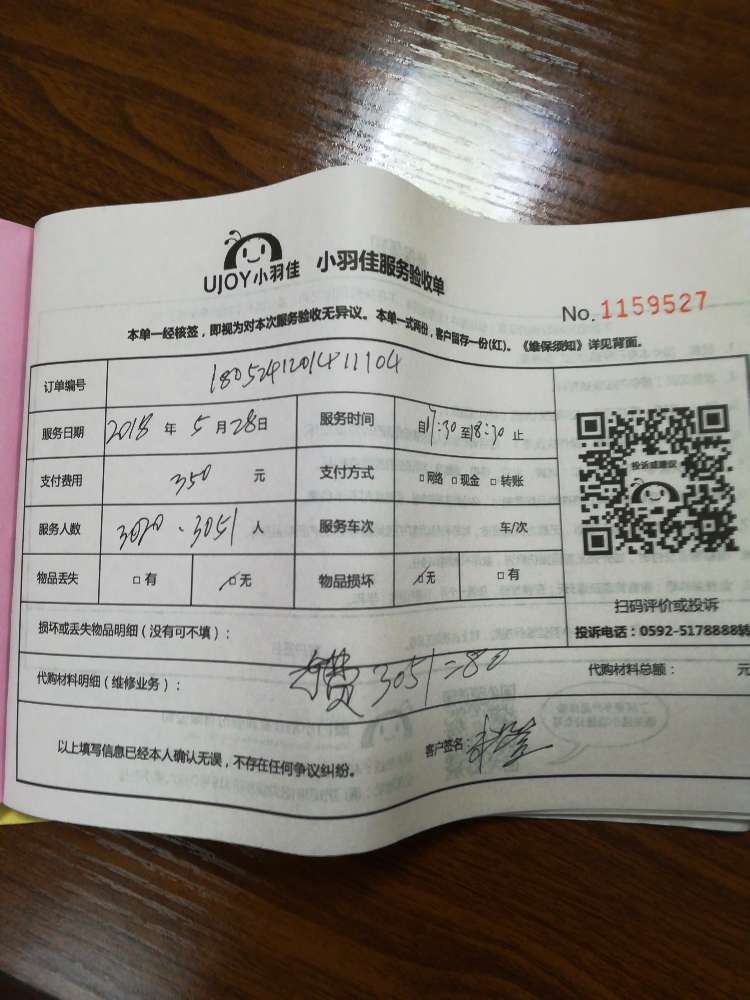 UJOY小羽佳 小羽佳服务验收单
No. 1159527
本单一经核签，即视为对本次服务验收无异议。本单一式两份，客户留存一份(红)。《维保须知》详见背面。
订单编号 1805241201411104
服务日期 2018 年 5 月 28 日 服务时间 自17:30至18:30止
支付费用 350 元 支付方式 □网络 □现金 □转账
服务人数 3020、3051 人 服务车次 车/次
物品丢失 □有 □无 物品损坏 □无 □有
投诉或建议
扫码评价或投诉
投诉电话：0592-5178888转
损坏或丢失物品明细（没有可不填）：
代购材料明细（维修业务）： 费3051=80 代购材料总额： 元
以上填写信息已经本人确认无误，不存在任何争议纠纷。 客户签名：